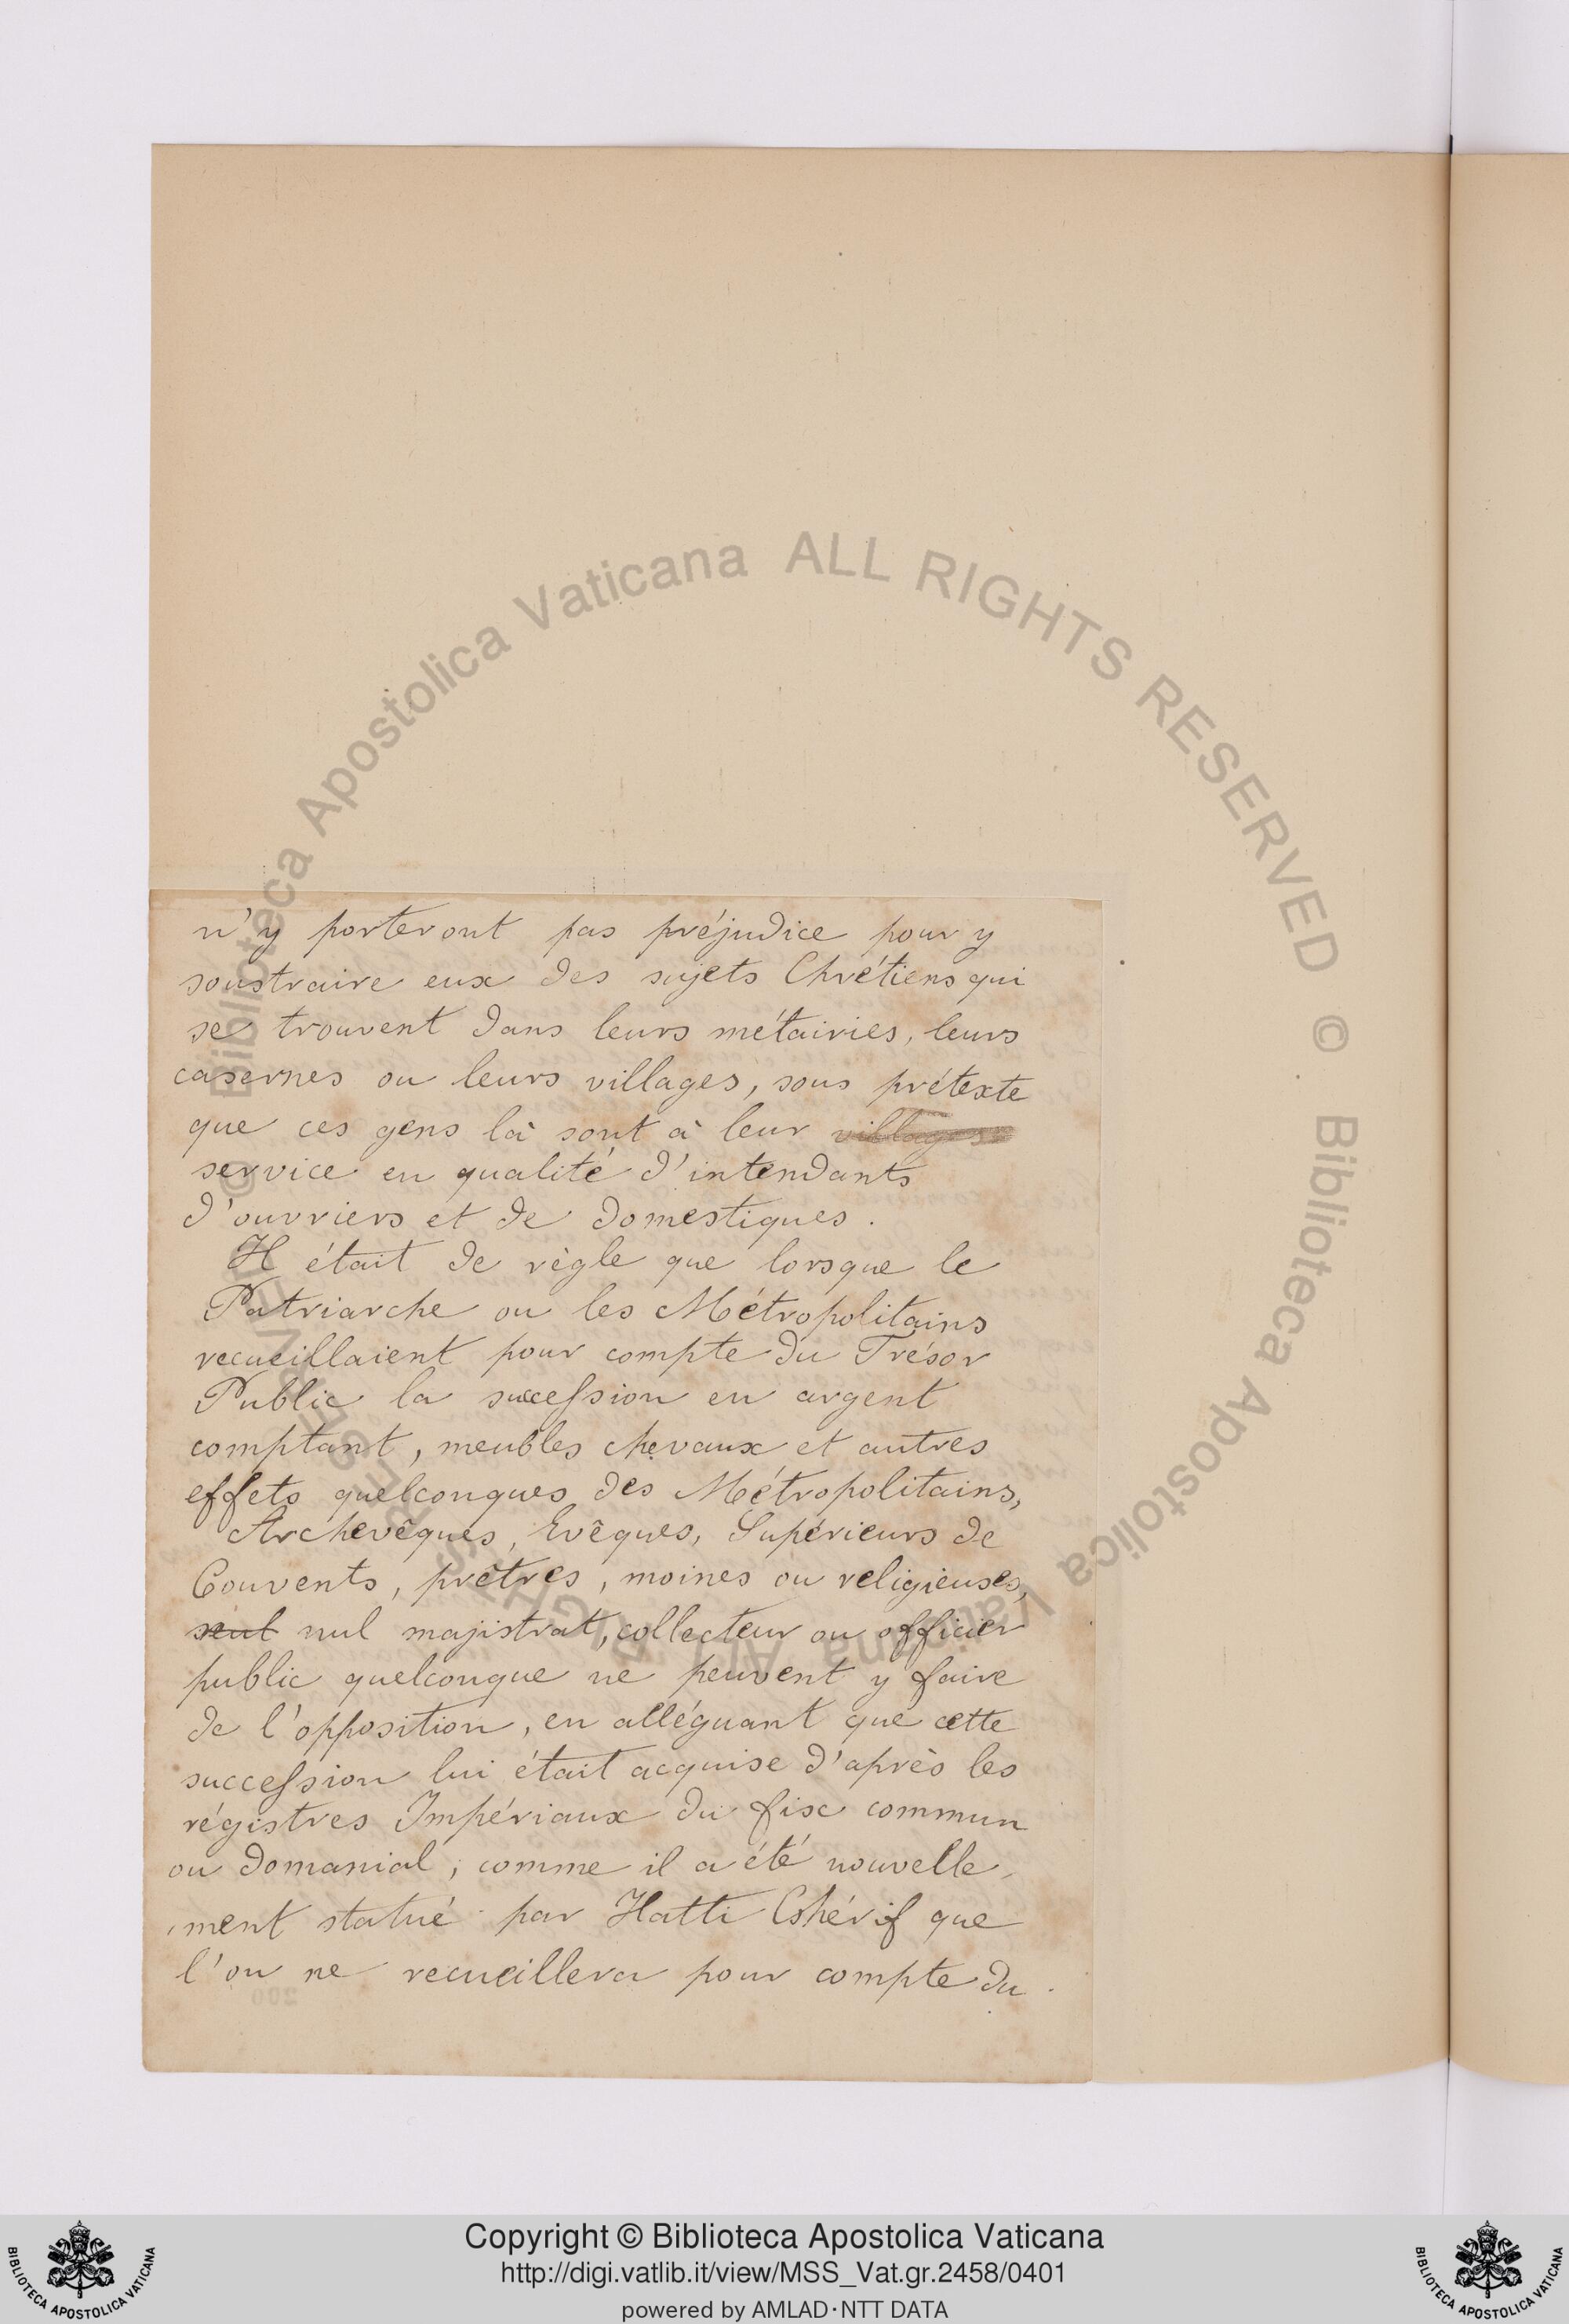 n'y porteront pas préjudice pour y
soustraire eux des sujets Chrétiens qui
se trouvent dans leurs métairies, leurs
casernes ou leurs villages, sous prétexte
que ces gens là sont à leur villages
service en qualité d'intendants
d'ouvriers et de domestiques.
Il était de règle que lorsque le
Patriarche ou les Métropolitains
recueillaient pour compte du Trésor
Public la succession en argent
comptant, meubles chevaux et autres
effets quelconques des Métropolitains,
Archevêques, Evêques, Supérieurs de
Couvents, prêtres, moines ou religieuses,
seul nul majistrat, collecteur ou officier
public quelconque ne peuvent y faire
de l'opposition, en alléguant que cette
succession lui était acquise d'après les
régistres Impériaux du fisc commun
ou domanial; comme il a été nouvelle-
ment statué par Hatti Chérif que
l'on ne recueillera pour compte du
© Biblioteca Apostolica Vaticana ALL RIGHTS RESERVED © Biblioteca Apostolica Vaticana ALL RIGHTS RESERVED
Copyright © Biblioteca Apostolica Vaticana
http://digi.vatlib.it/view/MSS_Vat.gr.2458/0401
powered by AMLAD·NTT DATA
BIBLIOTECA APOSTOLICA VATICANA
BIBLIOTECA APOSTOLICA VATICANA